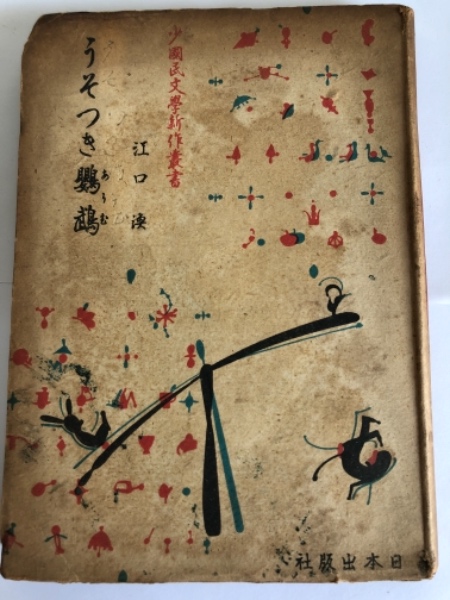 少國民文學新作叢書
江口渙
うそつき鸚鵡
あうむ
日本出版社